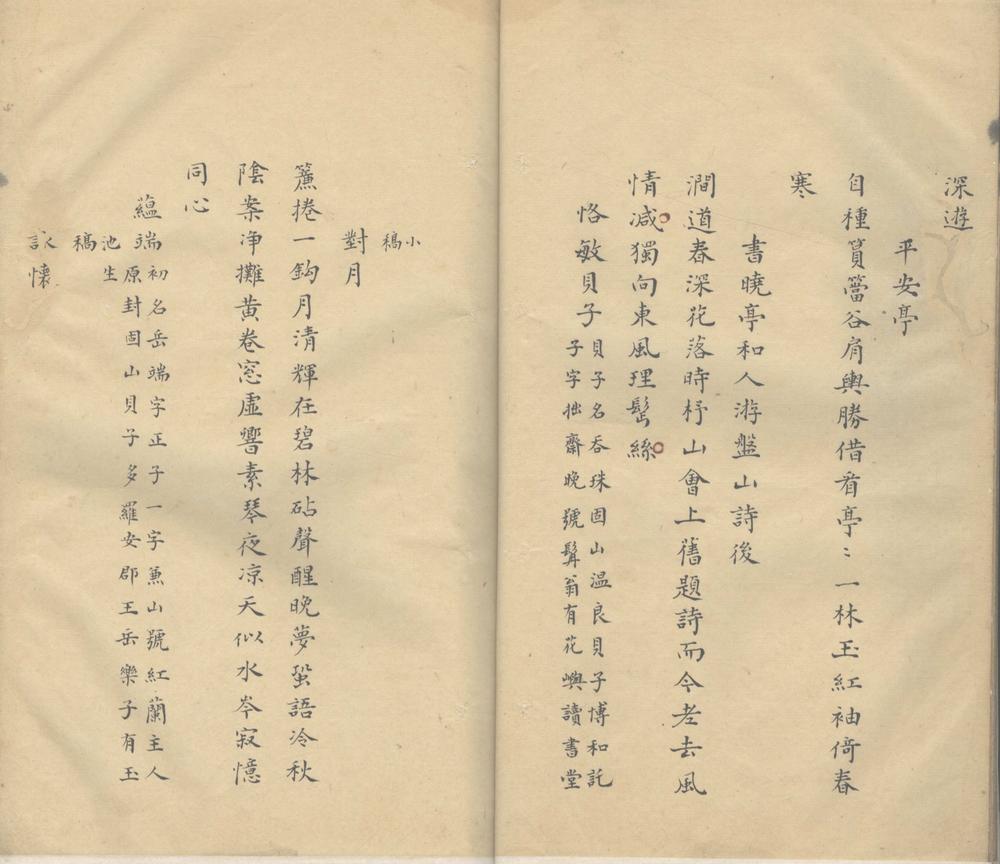 深遊
平安亭
自種篔簹谷肩輿勝借看亭〻一林玉紅袖倚春
寒
書曉亭和人游盤山詩後
澗道春深花落時杼山會上舊題詩而今老去風
情减獨向東風理髩絲
恪敏貝子
貝子名吞珠固山温良貝子博和託
子字拙齋晚號髯翁有花嶼讀書堂
小
稿
對月
簾捲一鈎月清輝在碧林砧聲醒晚夢蛩語冷秋
陰案净攤黄卷窓虚響素琴夜凉天似水岑寂憶
同心
蘊端
初名岳端字正子一字兼山號紅蘭主人
原封固山貝子多羅安郡王岳樂子有玉
池生
稿
詠懷